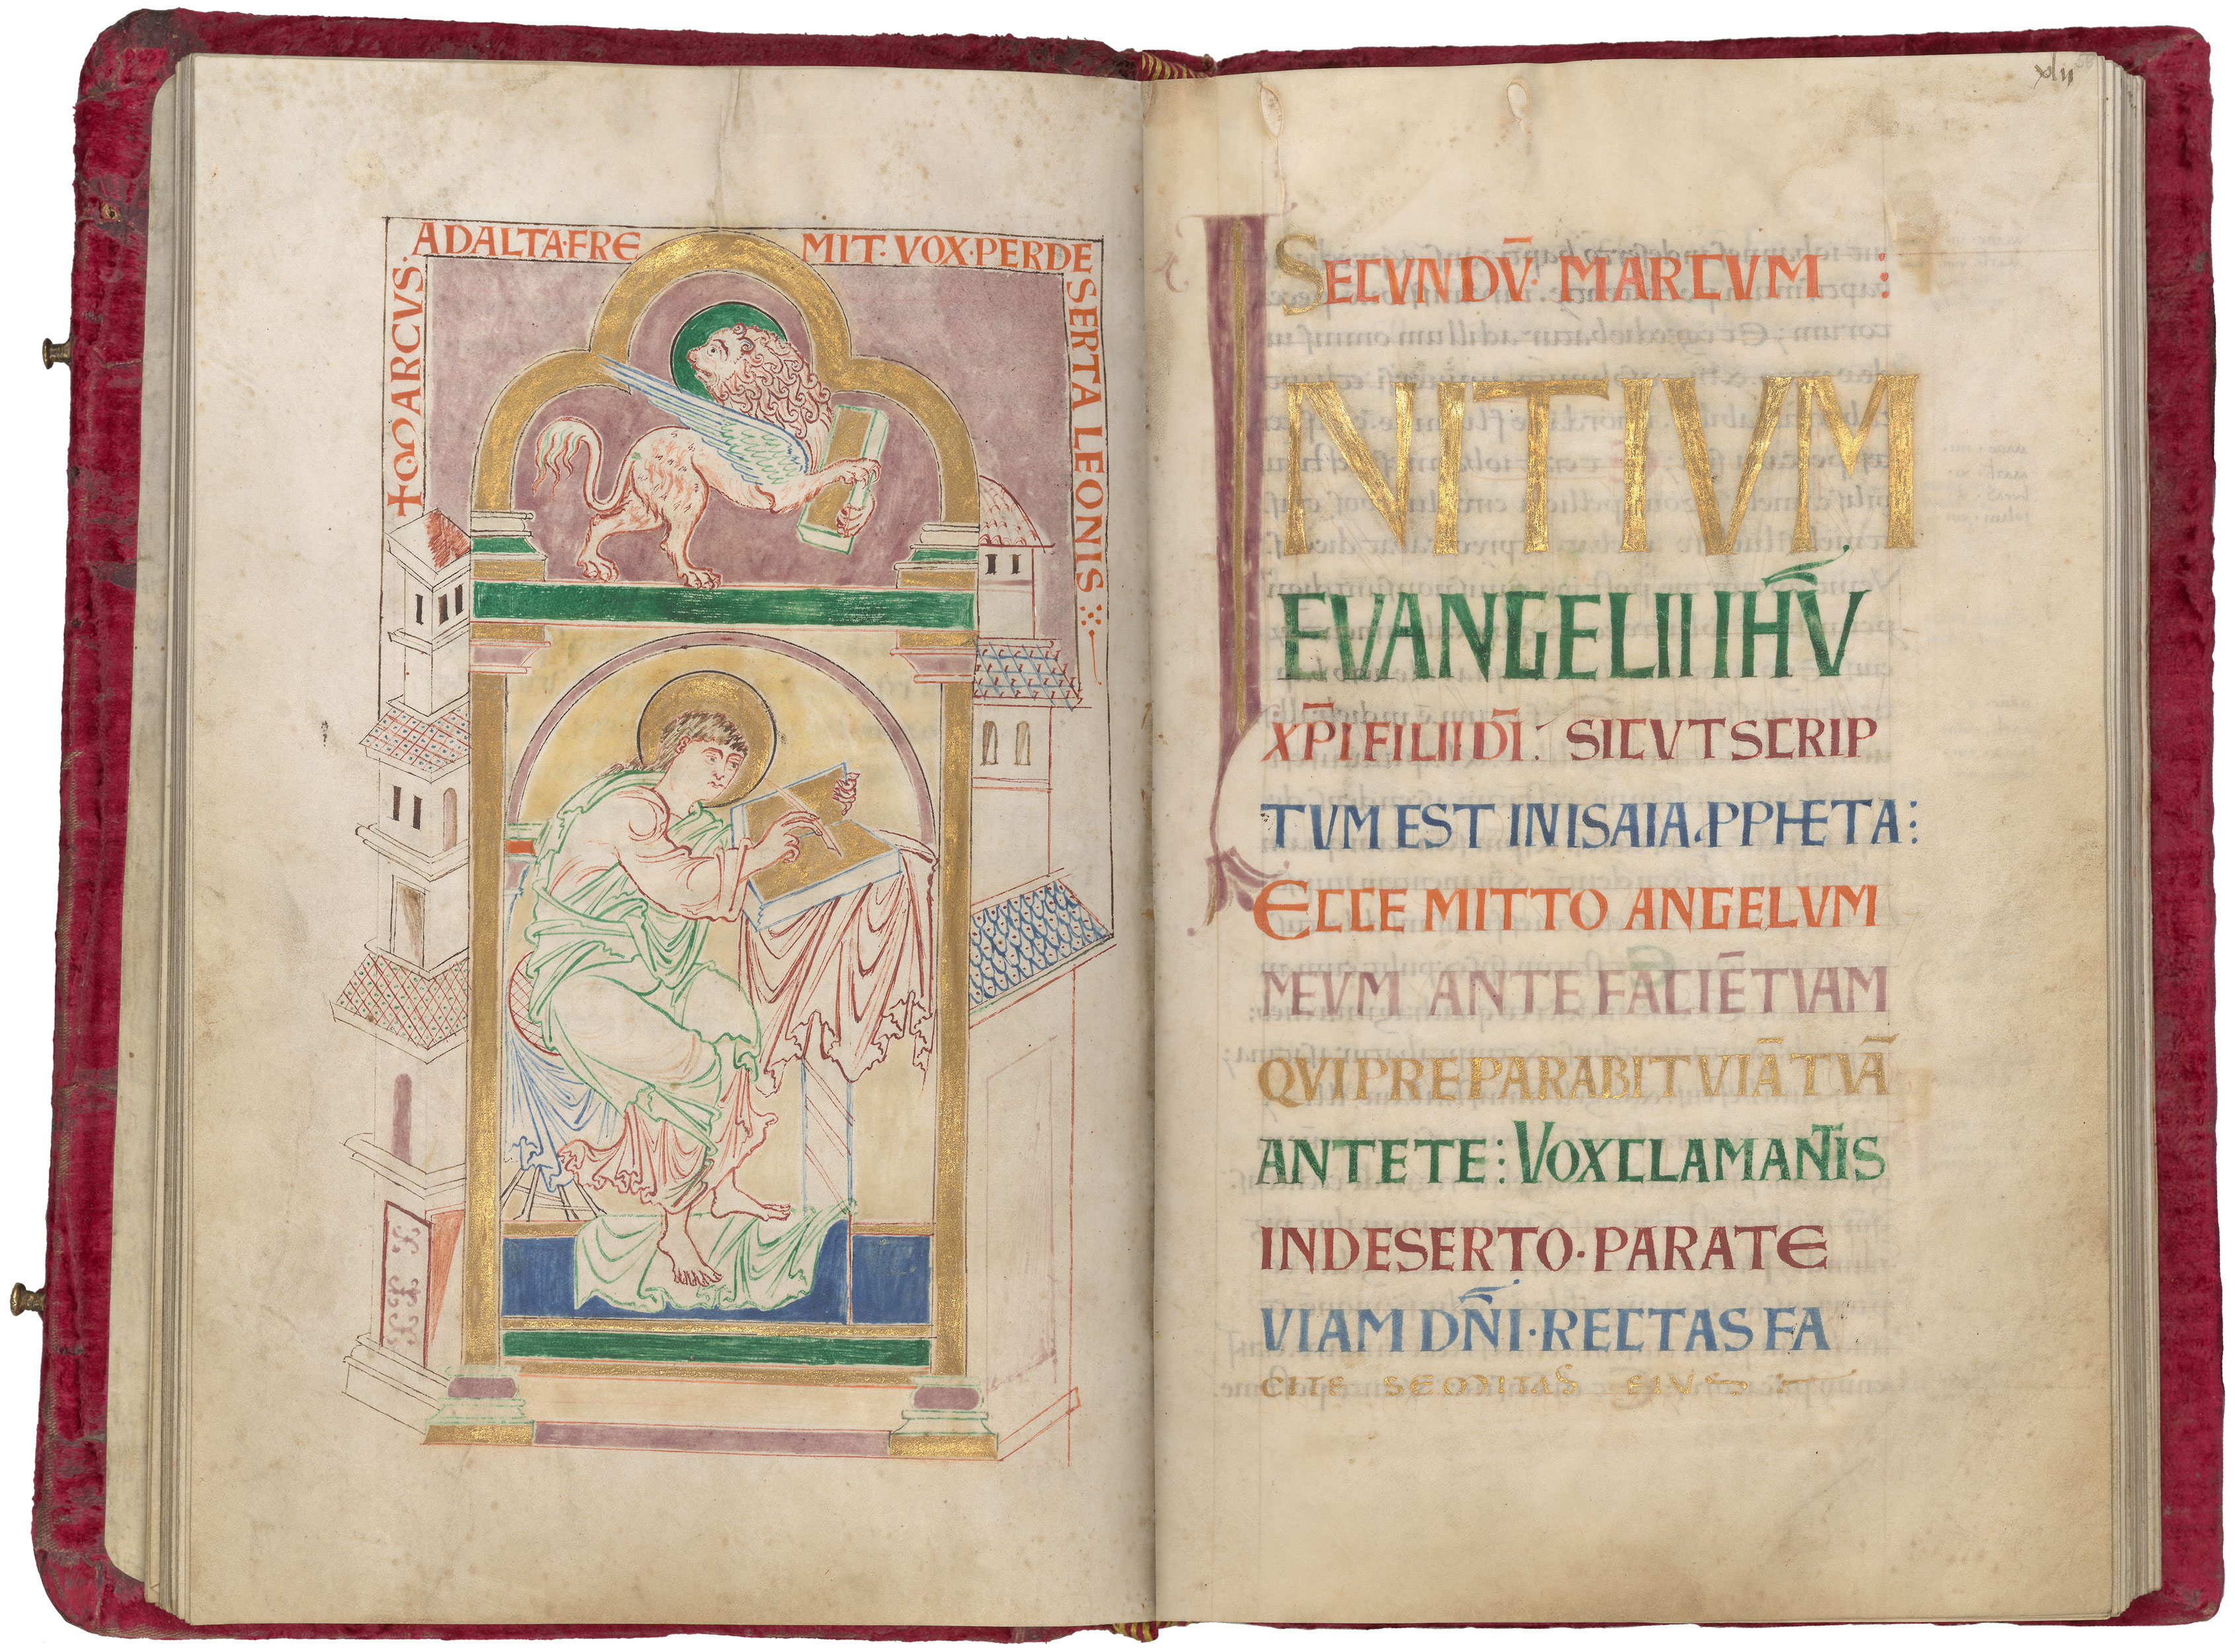 ✝MARCUS·
ADALTA·FRE
MIT·VOX·PERDE
SERTA LEONIS
xlii
SECUNDŪ· MARCUM :
INITIVM
EVANGELII IHV̄
XP̄I FILII DĪ: SICVT SCRIP
TVM EST IN ISAIA PPHETA:
ECCE MITTO ANGELVM
MEVM ANTE FACIĒ TVAM
QVI PREPARABIT VIĀ TVĀ
ANTE TE: VOX CLAMANTIS
IN DESERTO·PARATE
VIAM DN̄I·RECTAS FA
CITE SEMITAS EIVS